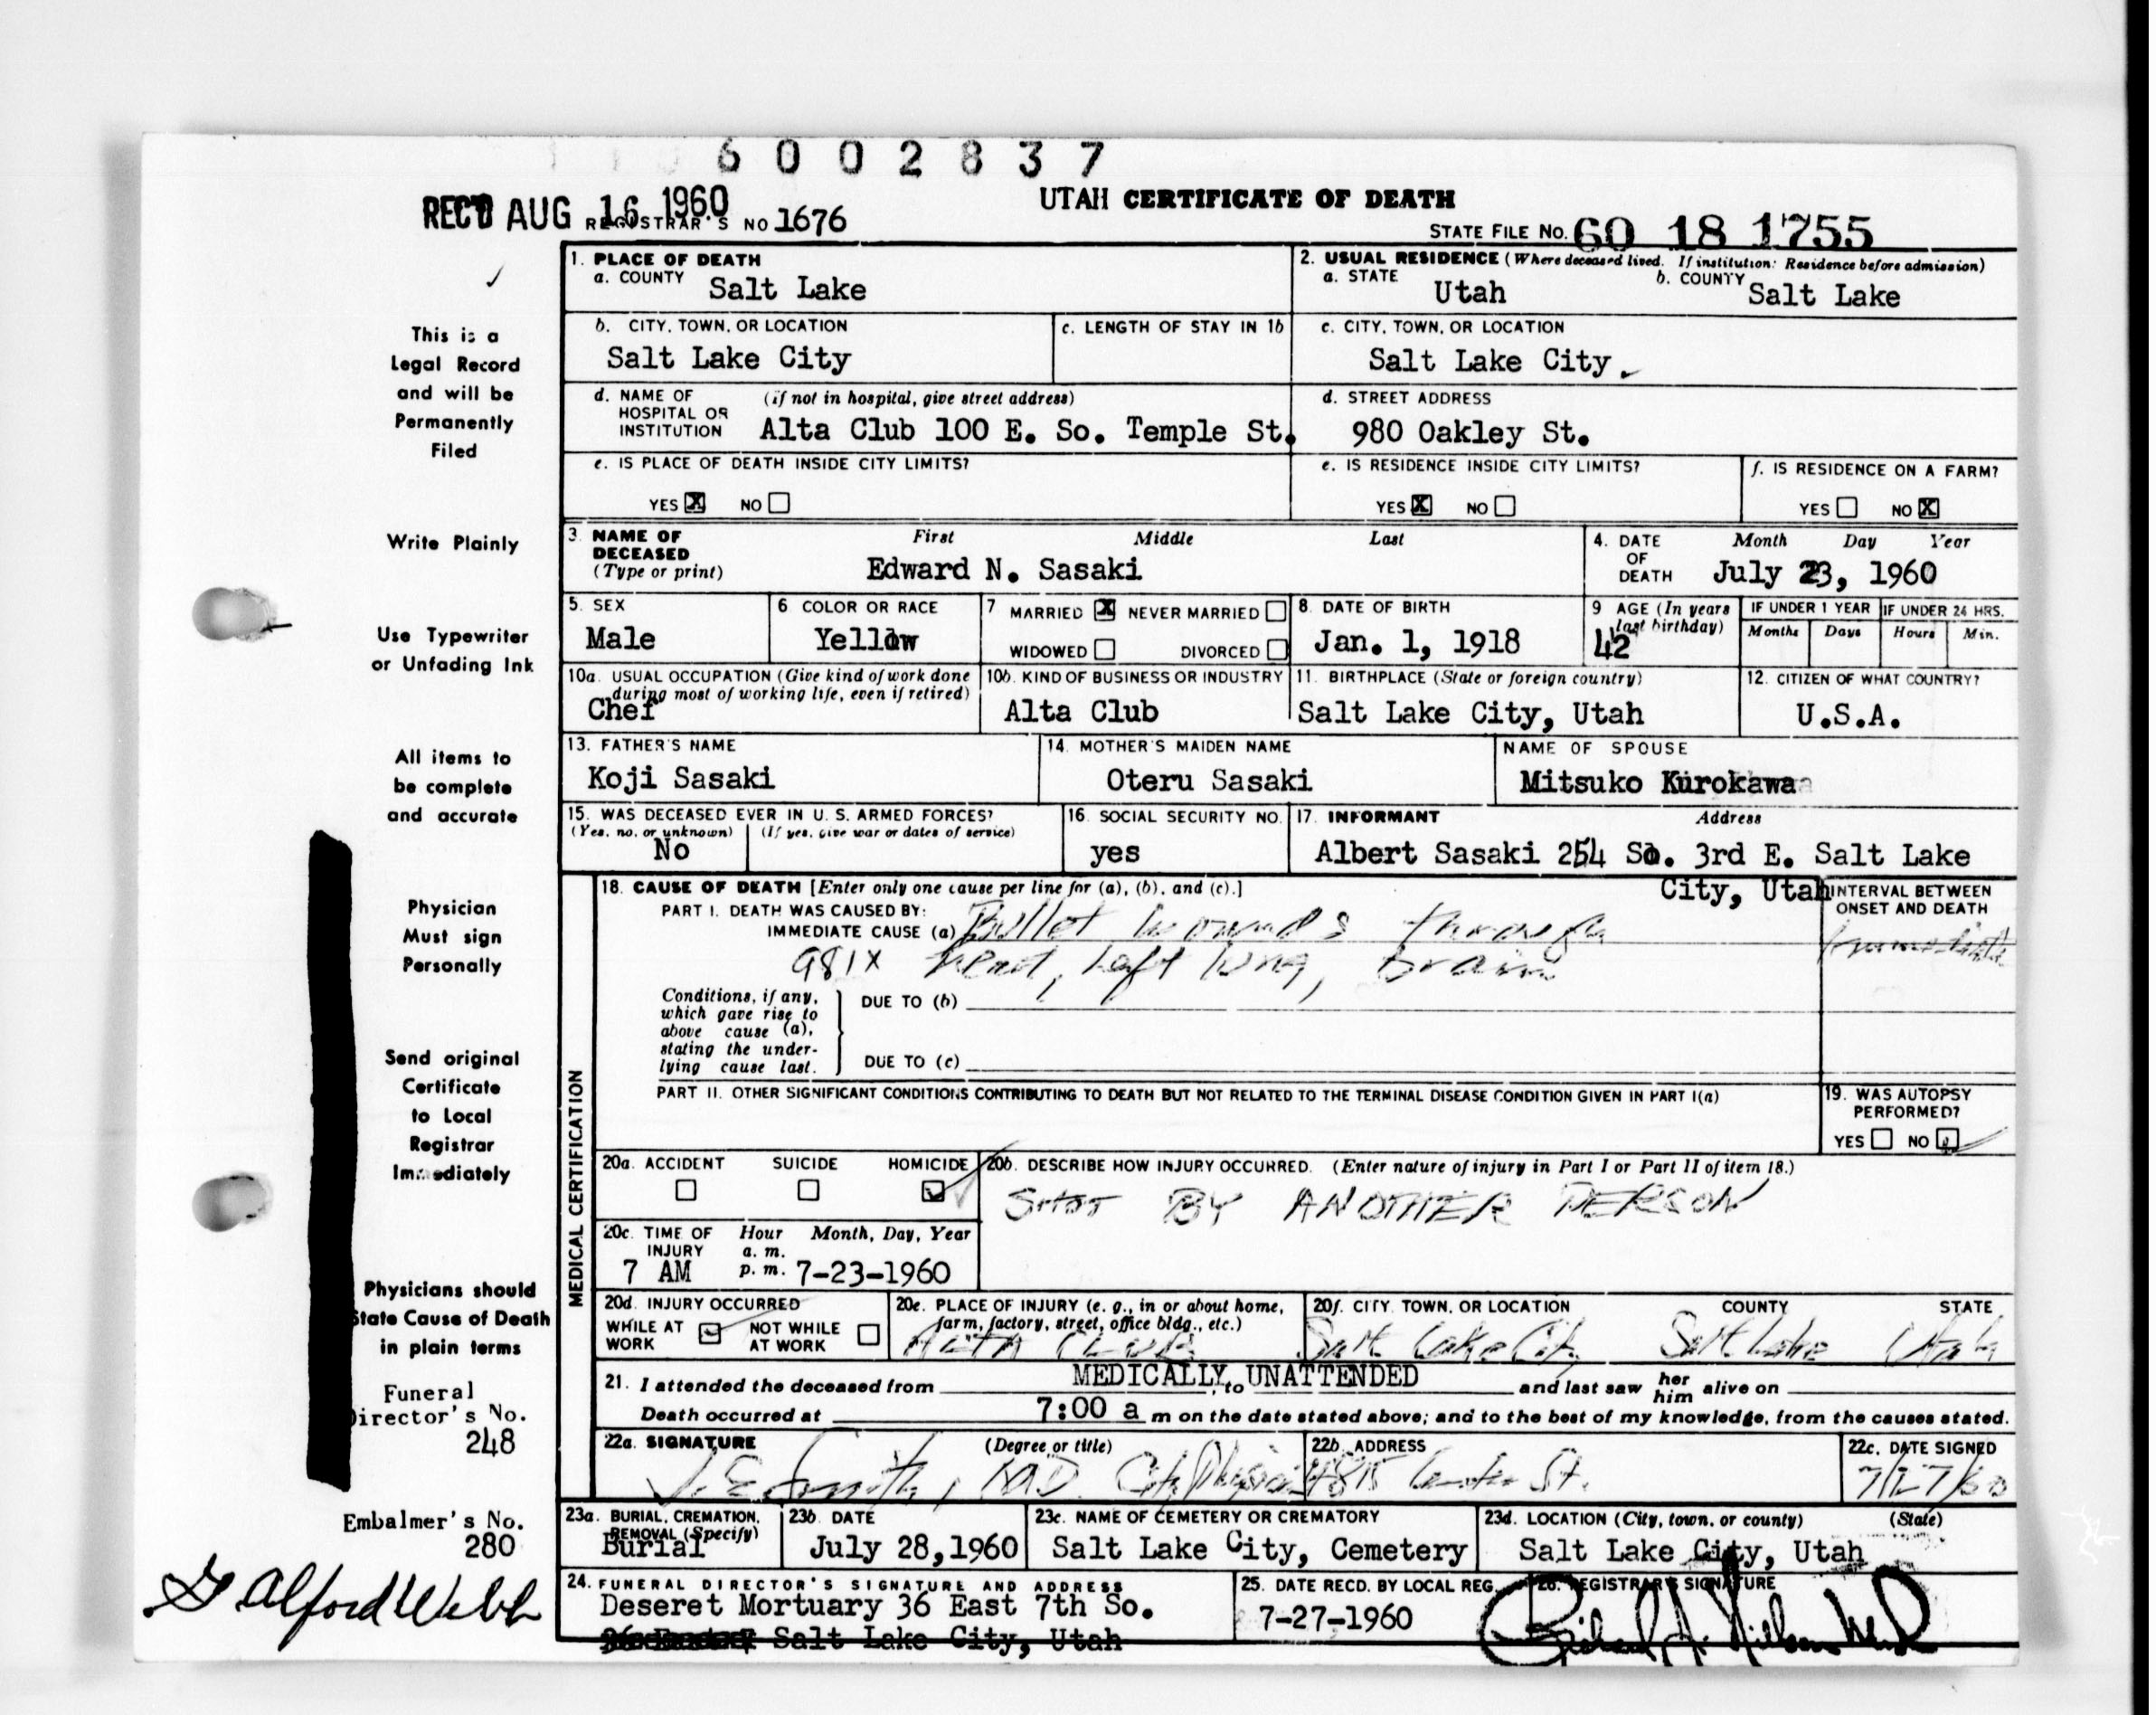 6 0 0 2 8 3 7
REC'D AUG 16 1960 REGISTRAR'S NO 1676
UTAH CERTIFICATE OF DEATH
STATE FILE NO. 60 18 1755
1. PLACE OF DEATH
a. COUNTY Salt Lake
2. USUAL RESIDENCE (Where deceased lived. If institution: Residence before admission)
a. STATE Utah b. COUNTY Salt Lake
b. CITY, TOWN, OR LOCATION
Salt Lake City
c. LENGTH OF STAY IN 1b
c. CITY, TOWN, OR LOCATION
Salt Lake City
d. NAME OF HOSPITAL OR INSTITUTION (if not in hospital, give street address)
Alta Club 100 E. So. Temple St.
d. STREET ADDRESS
980 Oakley St.
e. IS PLACE OF DEATH INSIDE CITY LIMITS?
YES X NO
e. IS RESIDENCE INSIDE CITY LIMITS?
YES X NO
f. IS RESIDENCE ON A FARM?
YES NO X
3. NAME OF DECEASED (Type or print)
First Middle Last
Edward N. Sasaki
4. DATE OF DEATH Month Day Year
July 23, 1960
5. SEX
Male
6 COLOR OR RACE
Yellow
7 MARRIED X NEVER MARRIED
WIDOWED DIVORCED
8. DATE OF BIRTH
Jan. 1, 1918
9 AGE (In years last birthday)
42
IF UNDER 1 YEAR
Months Days
IF UNDER 24 HRS.
Hours Min.
10a. USUAL OCCUPATION (Give kind of work done during most of working life, even if retired)
Chef
10b. KIND OF BUSINESS OR INDUSTRY
Alta Club
11. BIRTHPLACE (State or foreign country)
Salt Lake City, Utah
12. CITIZEN OF WHAT COUNTRY?
U.S.A.
13. FATHER'S NAME
Koji Sasaki
14. MOTHER'S MAIDEN NAME
Oteru Sasaki
NAME OF SPOUSE
Mitsuko Kurokawa
15. WAS DECEASED EVER IN U. S. ARMED FORCES?
(Yes, no, or unknown) (If yes, give war or dates of service)
No
16. SOCIAL SECURITY NO.
yes
17. INFORMANT Address
Albert Sasaki 254 So. 3rd E. Salt Lake
City, Utah
MEDICAL CERTIFICATION
18. CAUSE OF DEATH [Enter only one cause per line for (a), (b), and (c).]
PART I. DEATH WAS CAUSED BY:
IMMEDIATE CAUSE (a) Bullet wounds through
981X head, Left lung, brain
INTERVAL BETWEEN ONSET AND DEATH
Immediate
Conditions, if any, which gave rise to above cause (a), stating the underlying cause last.
DUE TO (b)
DUE TO (c)
PART II. OTHER SIGNIFICANT CONDITIONS CONTRIBUTING TO DEATH BUT NOT RELATED TO THE TERMINAL DISEASE CONDITION GIVEN IN PART I(a)
19. WAS AUTOPSY PERFORMED?
YES NO
20a. ACCIDENT SUICIDE HOMICIDE
20b. DESCRIBE HOW INJURY OCCURRED. (Enter nature of injury in Part I or Part II of item 18.)
SHOT BY ANOTHER PERSON
20c. TIME OF INJURY Hour Month, Day, Year
a. m.
7 AM p. m. 7-23-1960
20d. INJURY OCCURRED
WHILE AT WORK NOT WHILE AT WORK
20e. PLACE OF INJURY (e. g., in or about home, farm, factory, street, office bldg., etc.)
ALTA CLUB
20f. CITY, TOWN, OR LOCATION COUNTY STATE
Salt Lake City Salt Lake Utah
21. I attended the deceased from MEDICALLY, to UNATTENDED and last saw her him alive on
Death occurred at 7:00 a m on the date stated above; and to the best of my knowledge, from the causes stated.
22a. SIGNATURE (Degree or title)
J. E. Smith, M.D. City Physician
22b. ADDRESS
St.
22c. DATE SIGNED
7/27/60
23a. BURIAL, CREMATION, REMOVAL (Specify)
Burial
23b. DATE
July 28,1960
23c. NAME OF CEMETERY OR CREMATORY
Salt Lake City, Cemetery
23d. LOCATION (City, town, or county) (State)
Salt Lake City, Utah
24. FUNERAL DIRECTOR'S SIGNATURE AND ADDRESS
Deseret Mortuary 36 East 7th So.
Salt Lake City, Utah
25. DATE RECD. BY LOCAL REG.
7-27-1960
26. REGISTRAR'S SIGNATURE
This is a
Legal Record
and will be
Permanently
Filed
Write Plainly
Use Typewriter
or Unfading Ink
All items to
be complete
and accurate
Physician
Must sign
Personally
Send original
Certificate
to Local
Registrar
Immediately
Physicians should
State Cause of Death
in plain terms
Funeral
Director's No.
248
Embalmer's No.
280
Alford Webb